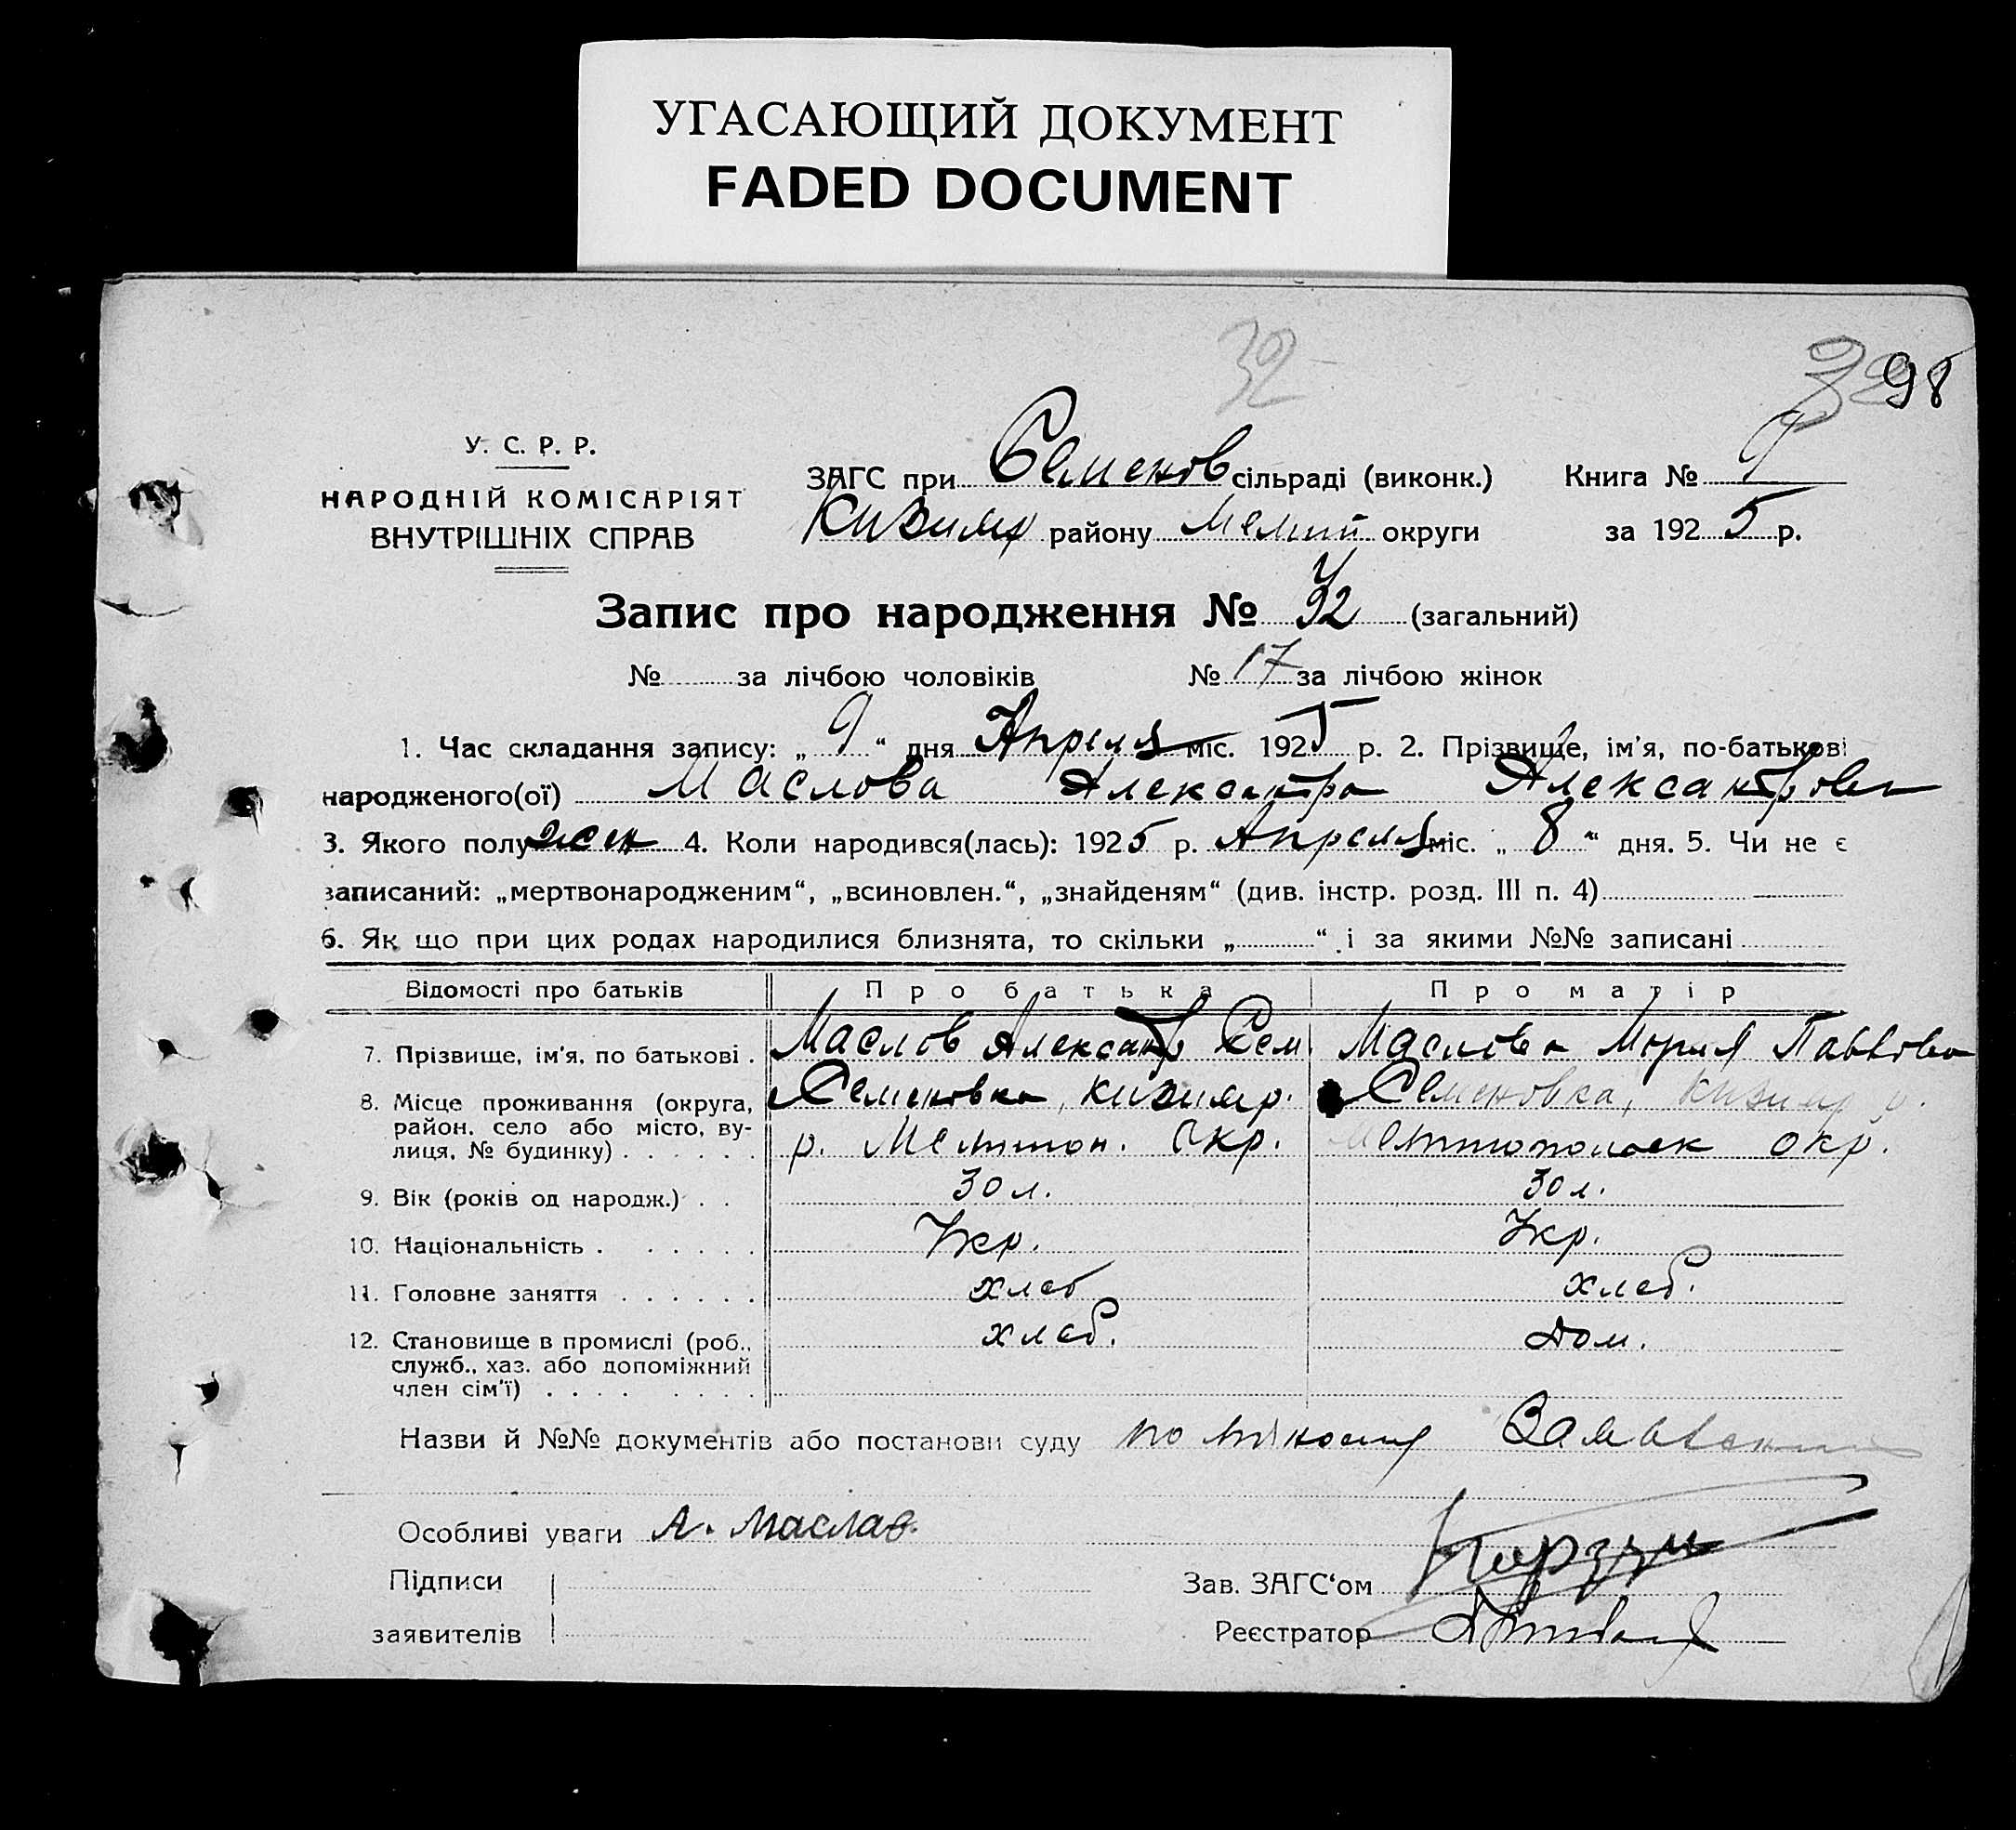 УГАСАЮЩИЙ ДОКУМЕНТ
FADED DOCUMENT
32
98
У. С. Р. Р.
НАРОДНІЙ КОМІСАРІЯТ
ВНУТРІШНІХ СПРАВ
ЗАГС при Семенов сільраді (виконк.) Книга №
Кизияр району округи за 1925 р.
Запис про народження № 32 (загальний)
№ за лічбою чоловіків № 17 за лічбою жінок
1. Час складання запису: „ 9 “ дня Апреля міс. 1925 р. 2. Прізвище, ім'я, по-батькові
народженого(ої) Маслова Александра Александровн
3. Якого полу жен 4. Коли народився(лась): 1925 р. Апреля міс. „ 8 “ дня. 5. Чи не є
записаний: „мертвонародженим“, „всиновлен.“, „знайденям“ (див. інстр. розд. III п. 4)
6. Як що при цих родах народилися близнята, то скільки „ “ і за якими №№ записані
Відомості про батьків Про батька Про матір
7. Прізвище, ім'я, по батькові . Маслов Александр Сем. Маслова Мария Павловн
8. Місце проживання (округа, Семеновка, Кизияр. Семеновка, Кизияр р.
район, село або місто, ву-
лиця, № будинку) . . . . . . р. Мелитоп. Окр. Мелитопольск окр.
9. Вік (років од народж.) . . 30 л. 30 л.
10. Національність . . . . . . Укр. Укр.
11. Головне заняття . . . . . . хлеб хлеб.
12. Становище в промислі (роб., хлеб. Дом.
служб., хаз. або допоміжний
член сім'ї) . . . . . . . .
Назви й №№ документів або постанови суду по
Особливі уваги А. Маслов.
Підписи
Зав. ЗАГС‘ом
заявителів
Реєстратор